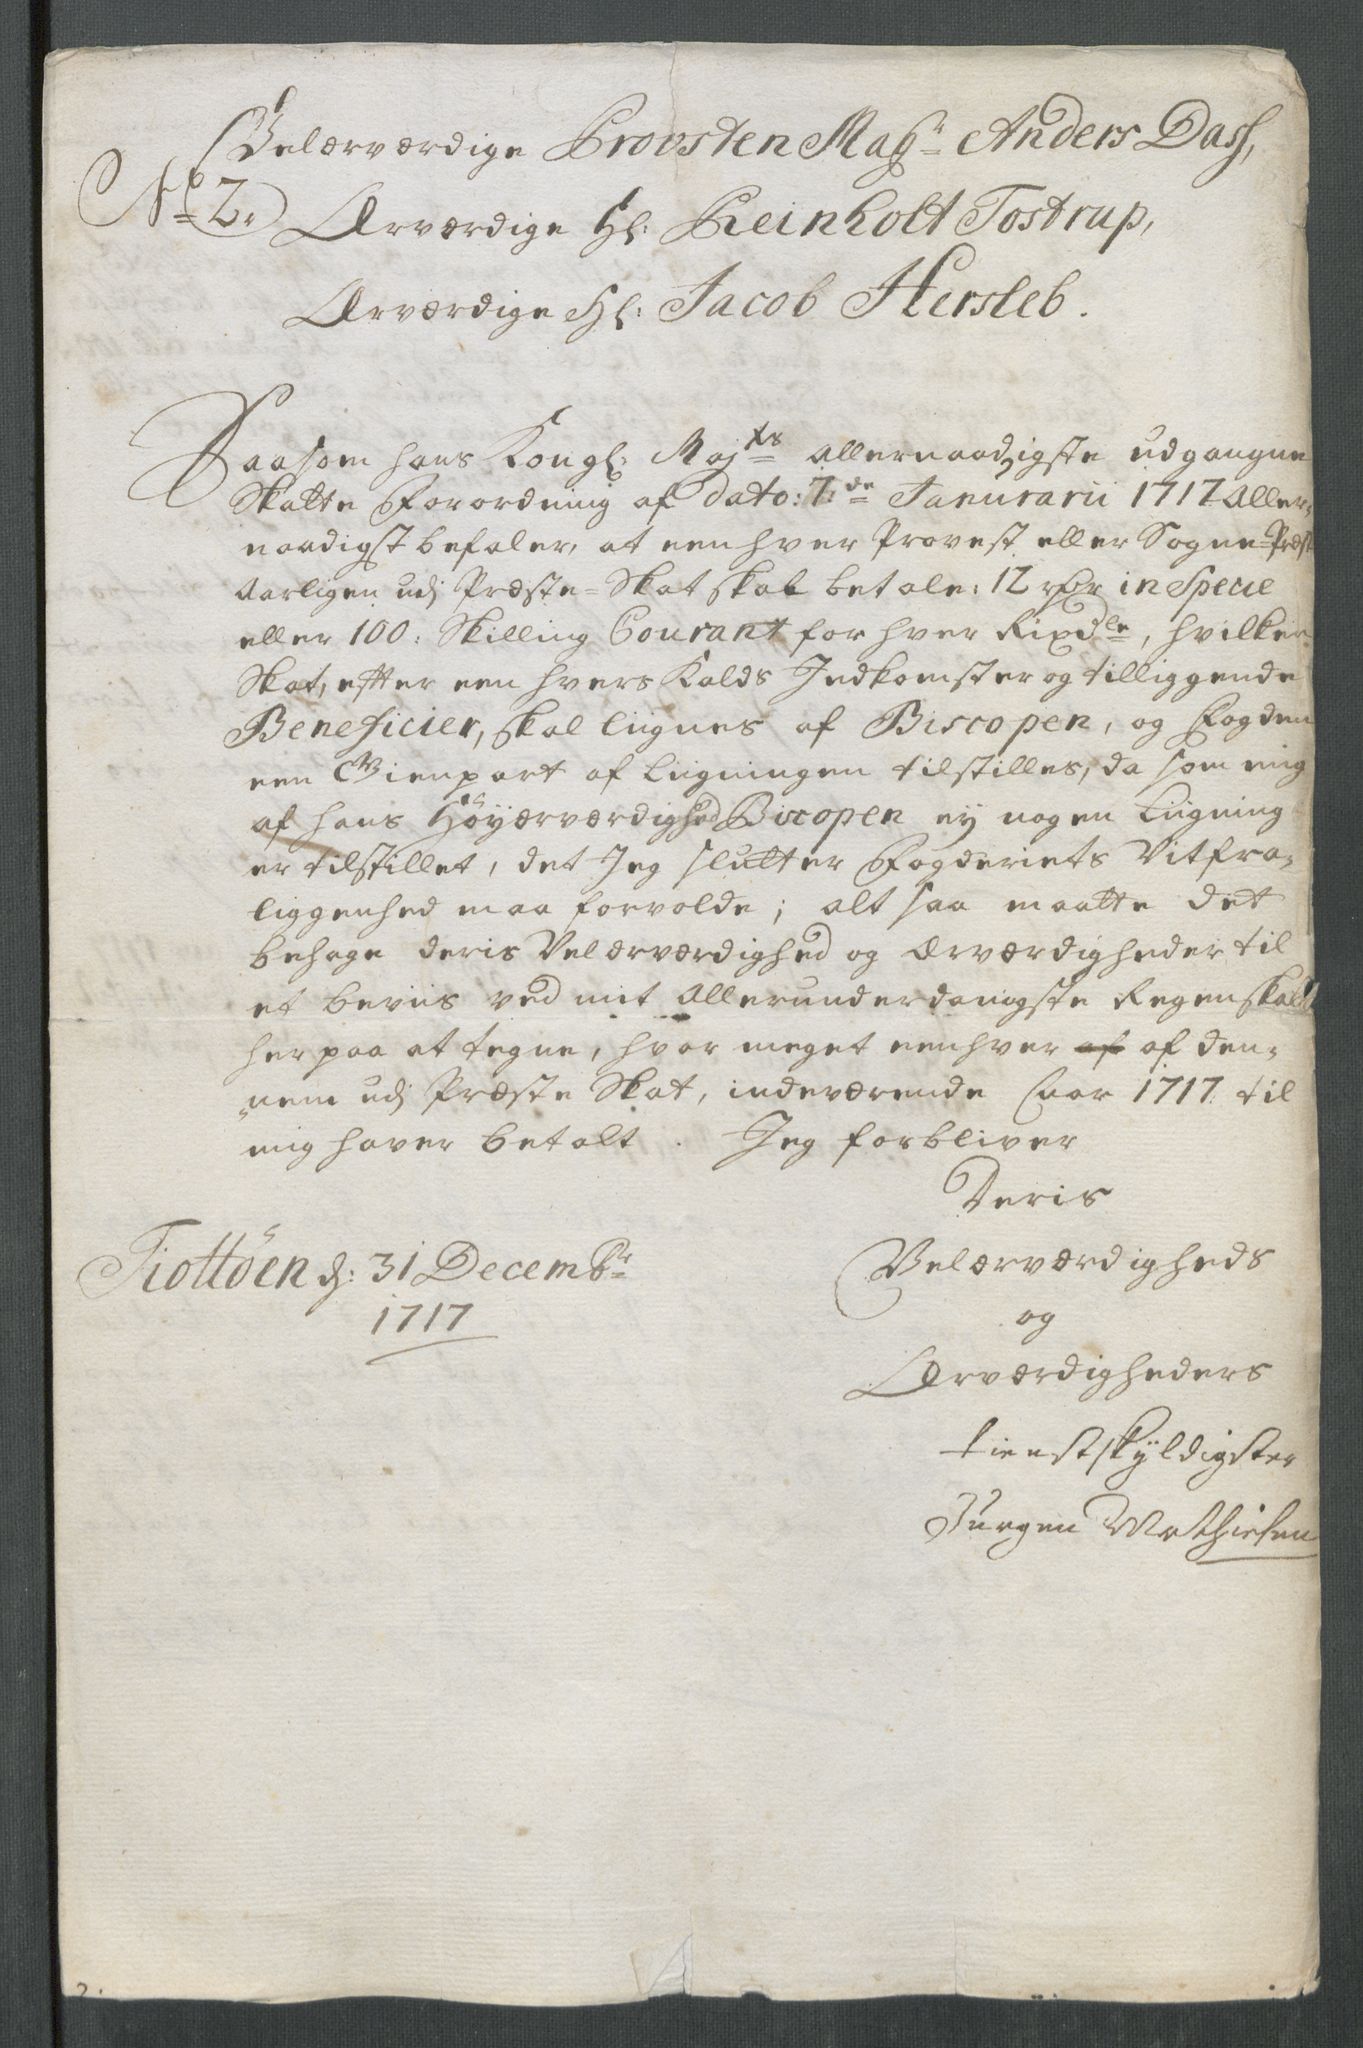 Velærværdige Provsten Mag.r Anders Dass,
No 2. Ærværdige Hr: Reinholt Tostrup,
Ærværdige Hr: Jacob Hersleb.
Saasom hans Kongl: Maj.ts allernaadigste udgangne
Skatte Forordning af dato: 7.de Janurarii 1717 Aller-
naadigst befaler, at een hver Provest eller Sogne-Præst
Aarligen udj Præste-Skat skal betale: 12 rdr in Specie
eller 100: Skilling Courant for hver Rixdle, hvilken
Skat, effter een hvers Kalds Indkomster og tilliggende
Beneficier, skal liignes af Biscopen, og Fogden
een Gienpart af Liigningen tilstilles, da som mig
af hans Höyærværdighed Biscopen ey nogen Liigning
er tilstillet, det Jeg slutter Fogderiets Vitfra-
liggenhed maa forvolde; alt saa maatte det
behage deris Velærværdighed og Ærværdigheder, til
et beviis ved mit allerunderdanigste Regenskab
her paa at tegne, hvor meget eenhver af af den-
nem udj Præste Skat, indeværende Aar 1717 til
mig haver betalt. Jeg forbliver
Deris
Tiottöen d: 31 Decemb.r
1717
Velærværdigheds
og
Ærværdigheders
tienstskÿldigster
Jurgen Mathiesen
2.